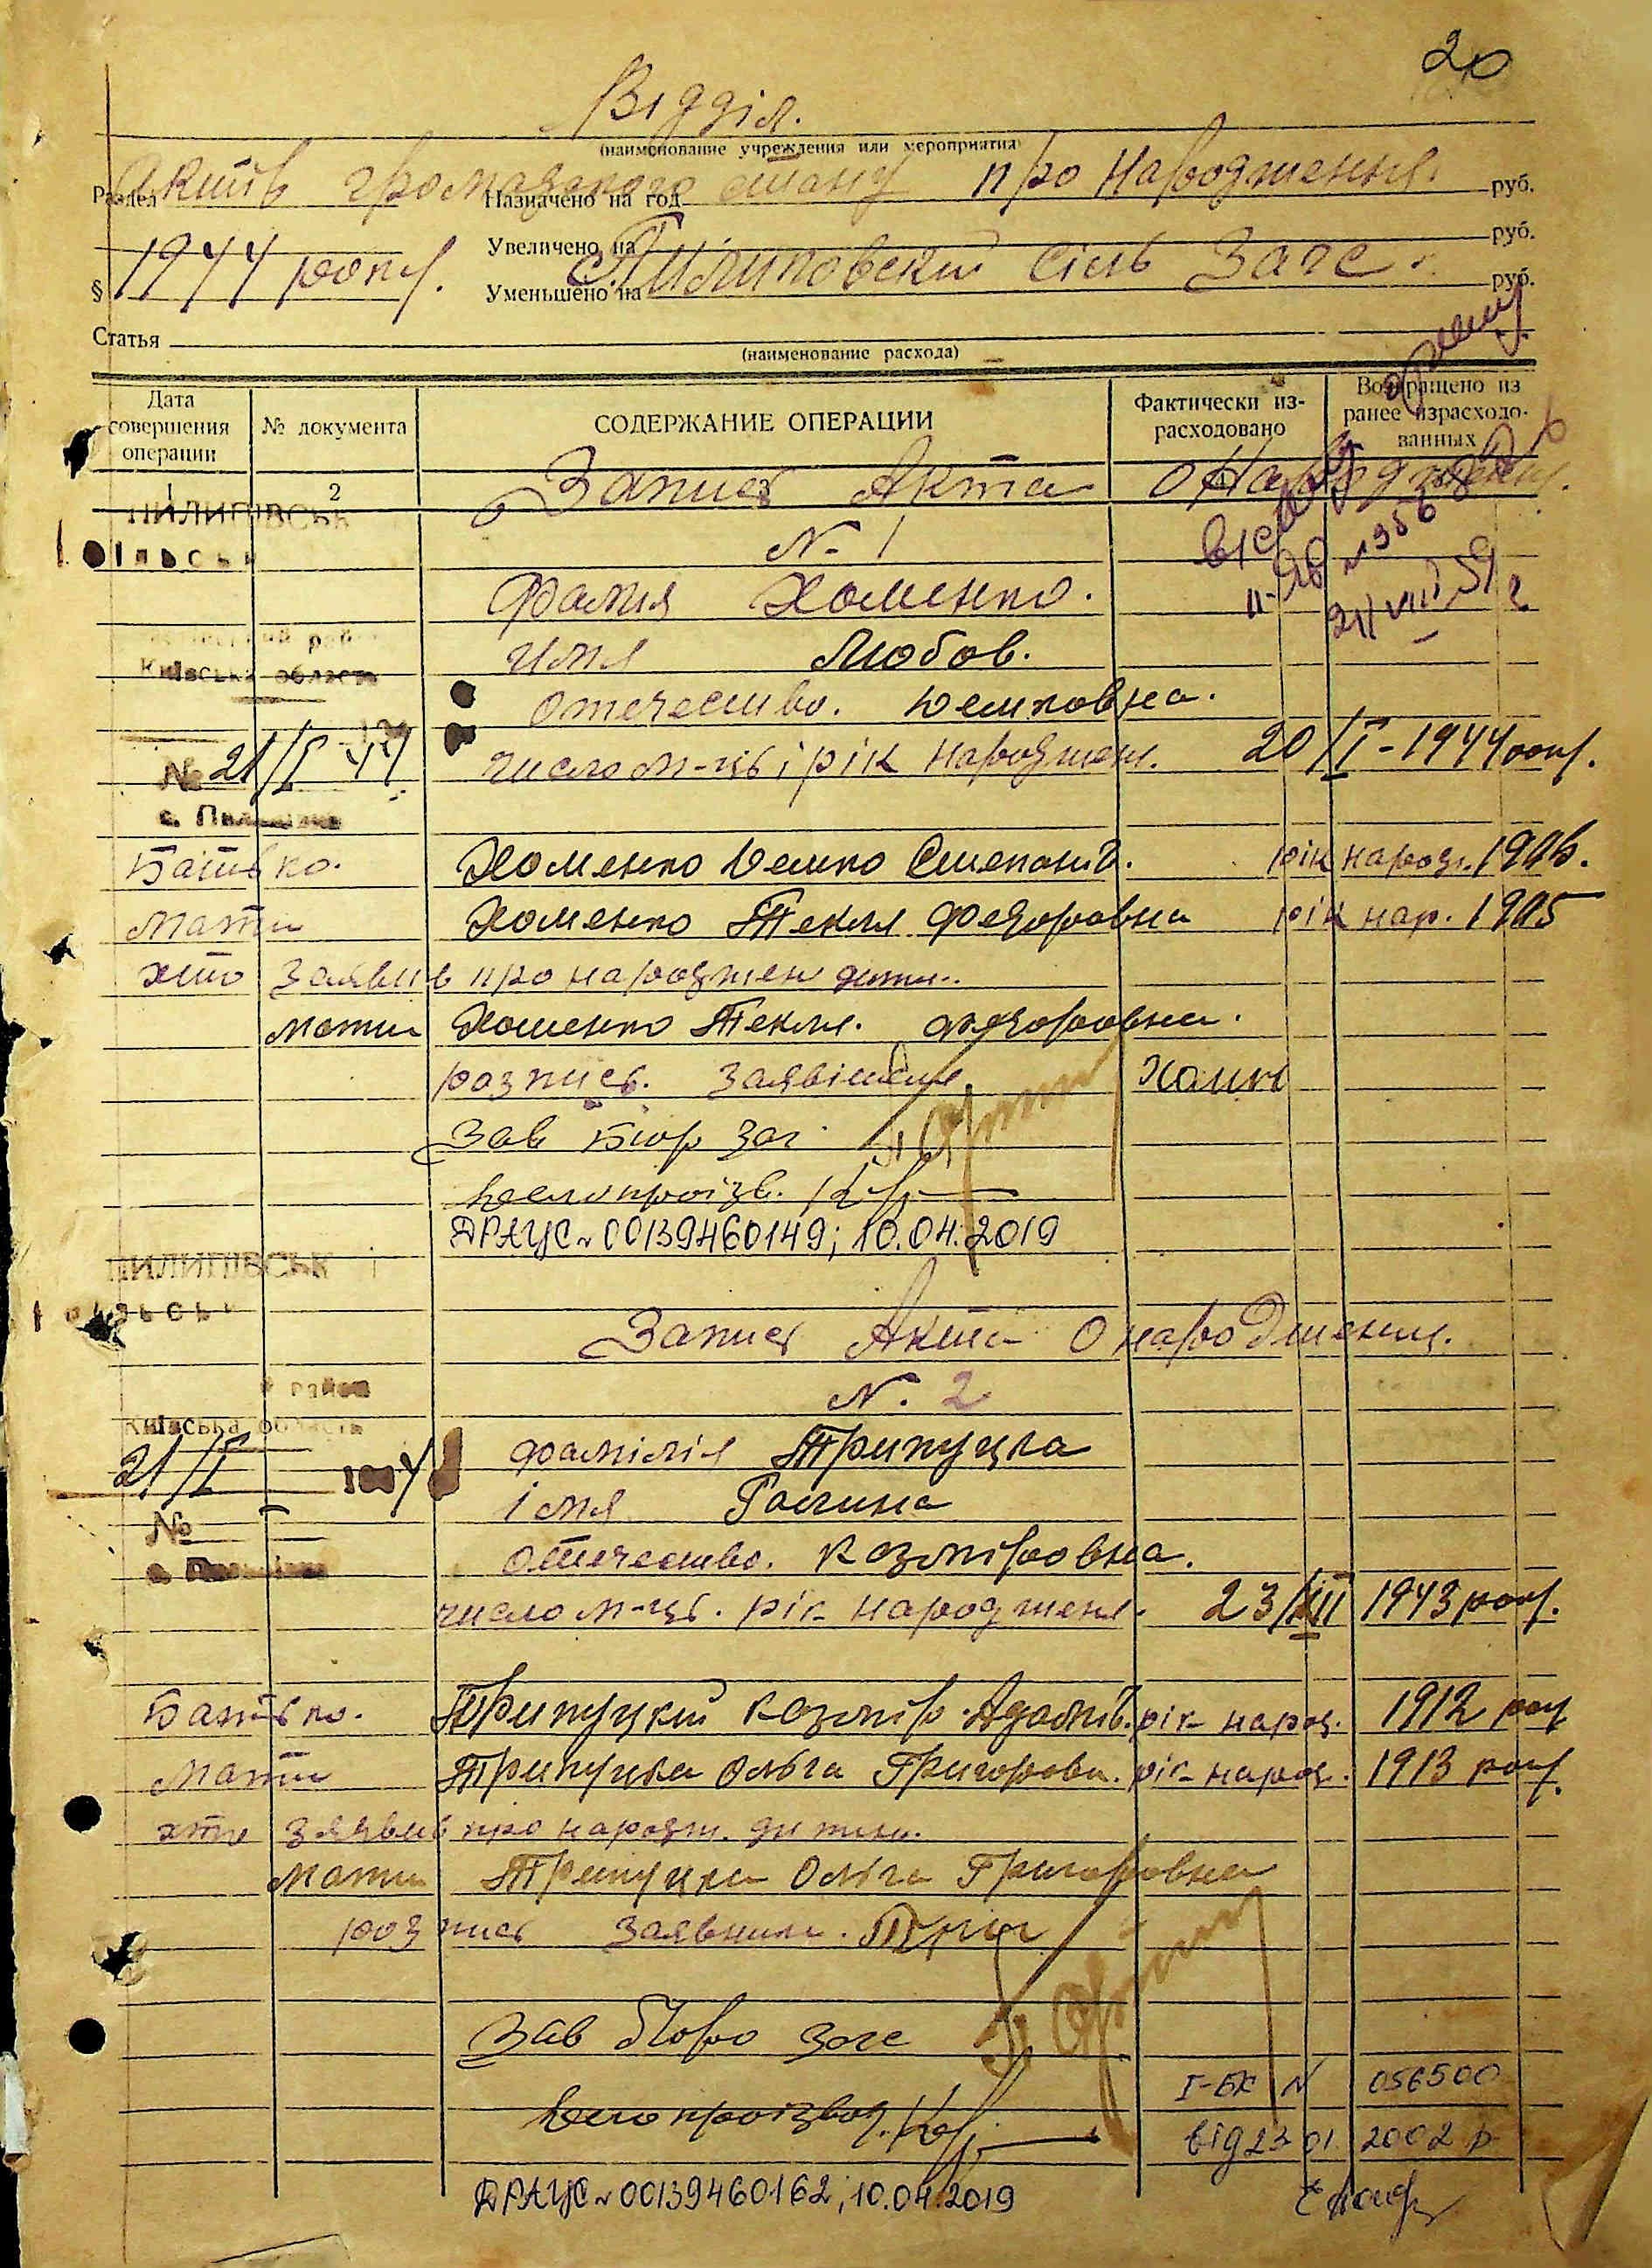 20
Відділ.
(наименование учреждения или мероприятия)
Раздел Актів громадского стану про народження. руб.
Назначено на год
1944 року. Увеличено на руб.
§ Уменьшено на с. Пилиповский Сіль Загс. руб.
Статья
(наименование расхода)
Дата совершения операции
№ документа
СОДЕРЖАНИЕ ОПЕРАЦИИ
Фактически израсходовано
Возвращено из ранее израсходованных
1 2 3
Запись Акта о Народжении.
ПИЛИПІВСЬК
№ 1
Фамия Хоменко.
21/VIII 59 г
Имя Любов.
Київська область
Отечество. Юсиповна.
№ 21/I 44 число м-ць і рік народжен. 20/I-1944 року.
с. Пилипівка
Батько. Хоменко Юсипо Степанів. рік народ. 1906.
Мати Хоменко Текля Федоровна рік нар. 1905
хто заявив про народжен дити..
мати Хоменко Текля. Федоровна.
розпись. заявителя. Хоми
Зав Бюр Заг
Делопроізв.
ДРАЦС № 00139460149; 10.04.2019
ПИЛИПІВСЬК
Запись Акта О народжении.
№. 2
район
Київська область
21/I 1944 фамілія Трипуцка
імя Галина
№
отечество. Козміровна.
число м-ць. рік народження. 23/XII 1943 року.
Батько. Трипуцкий Козмір. Адамів. рік народ. 1912 року
Мати Трипуцка Ольга Григоровн. рік народ. 1913 року.
хто заявив про народж. дитини.
Мати Трипуцка Ольга Григоровна
розпись Заявника. Трип
Зав Бюро Загс
Делопроізвод.
І-БК № 056500
від 23 01 2002 р
ДРАЦС № 00139460162; 10.04.2019